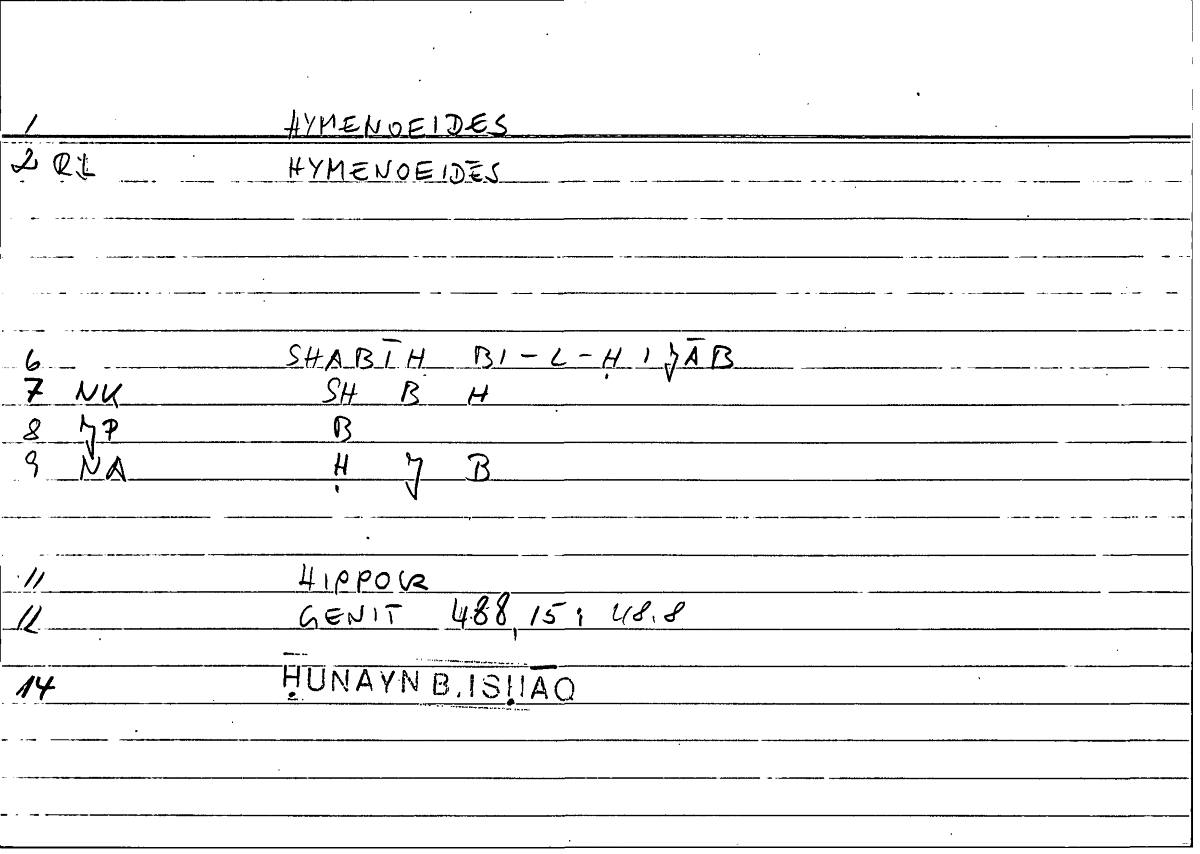 1 HYMENOEIDES
2 HYMENOEIDĒS
6 SHABĪH BI-L-ḤIJĀB
7 NK SH B H
8 JP B
9 NA Ḥ J B
11 HIPPOCR
12 GENIT 488,15; 48.8
14 ḤUNAYN B. ISḤĀQ